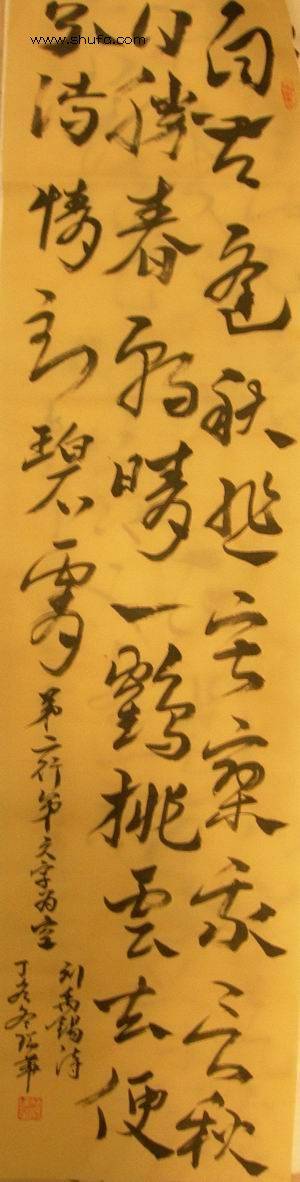 www.shufa.com
自古逢秋悲寂寥我言秋
日勝春朝晴一鶴排云上便
引诗情到碧霄
第二行第六字为空
刘禹锡诗
丁亥冬